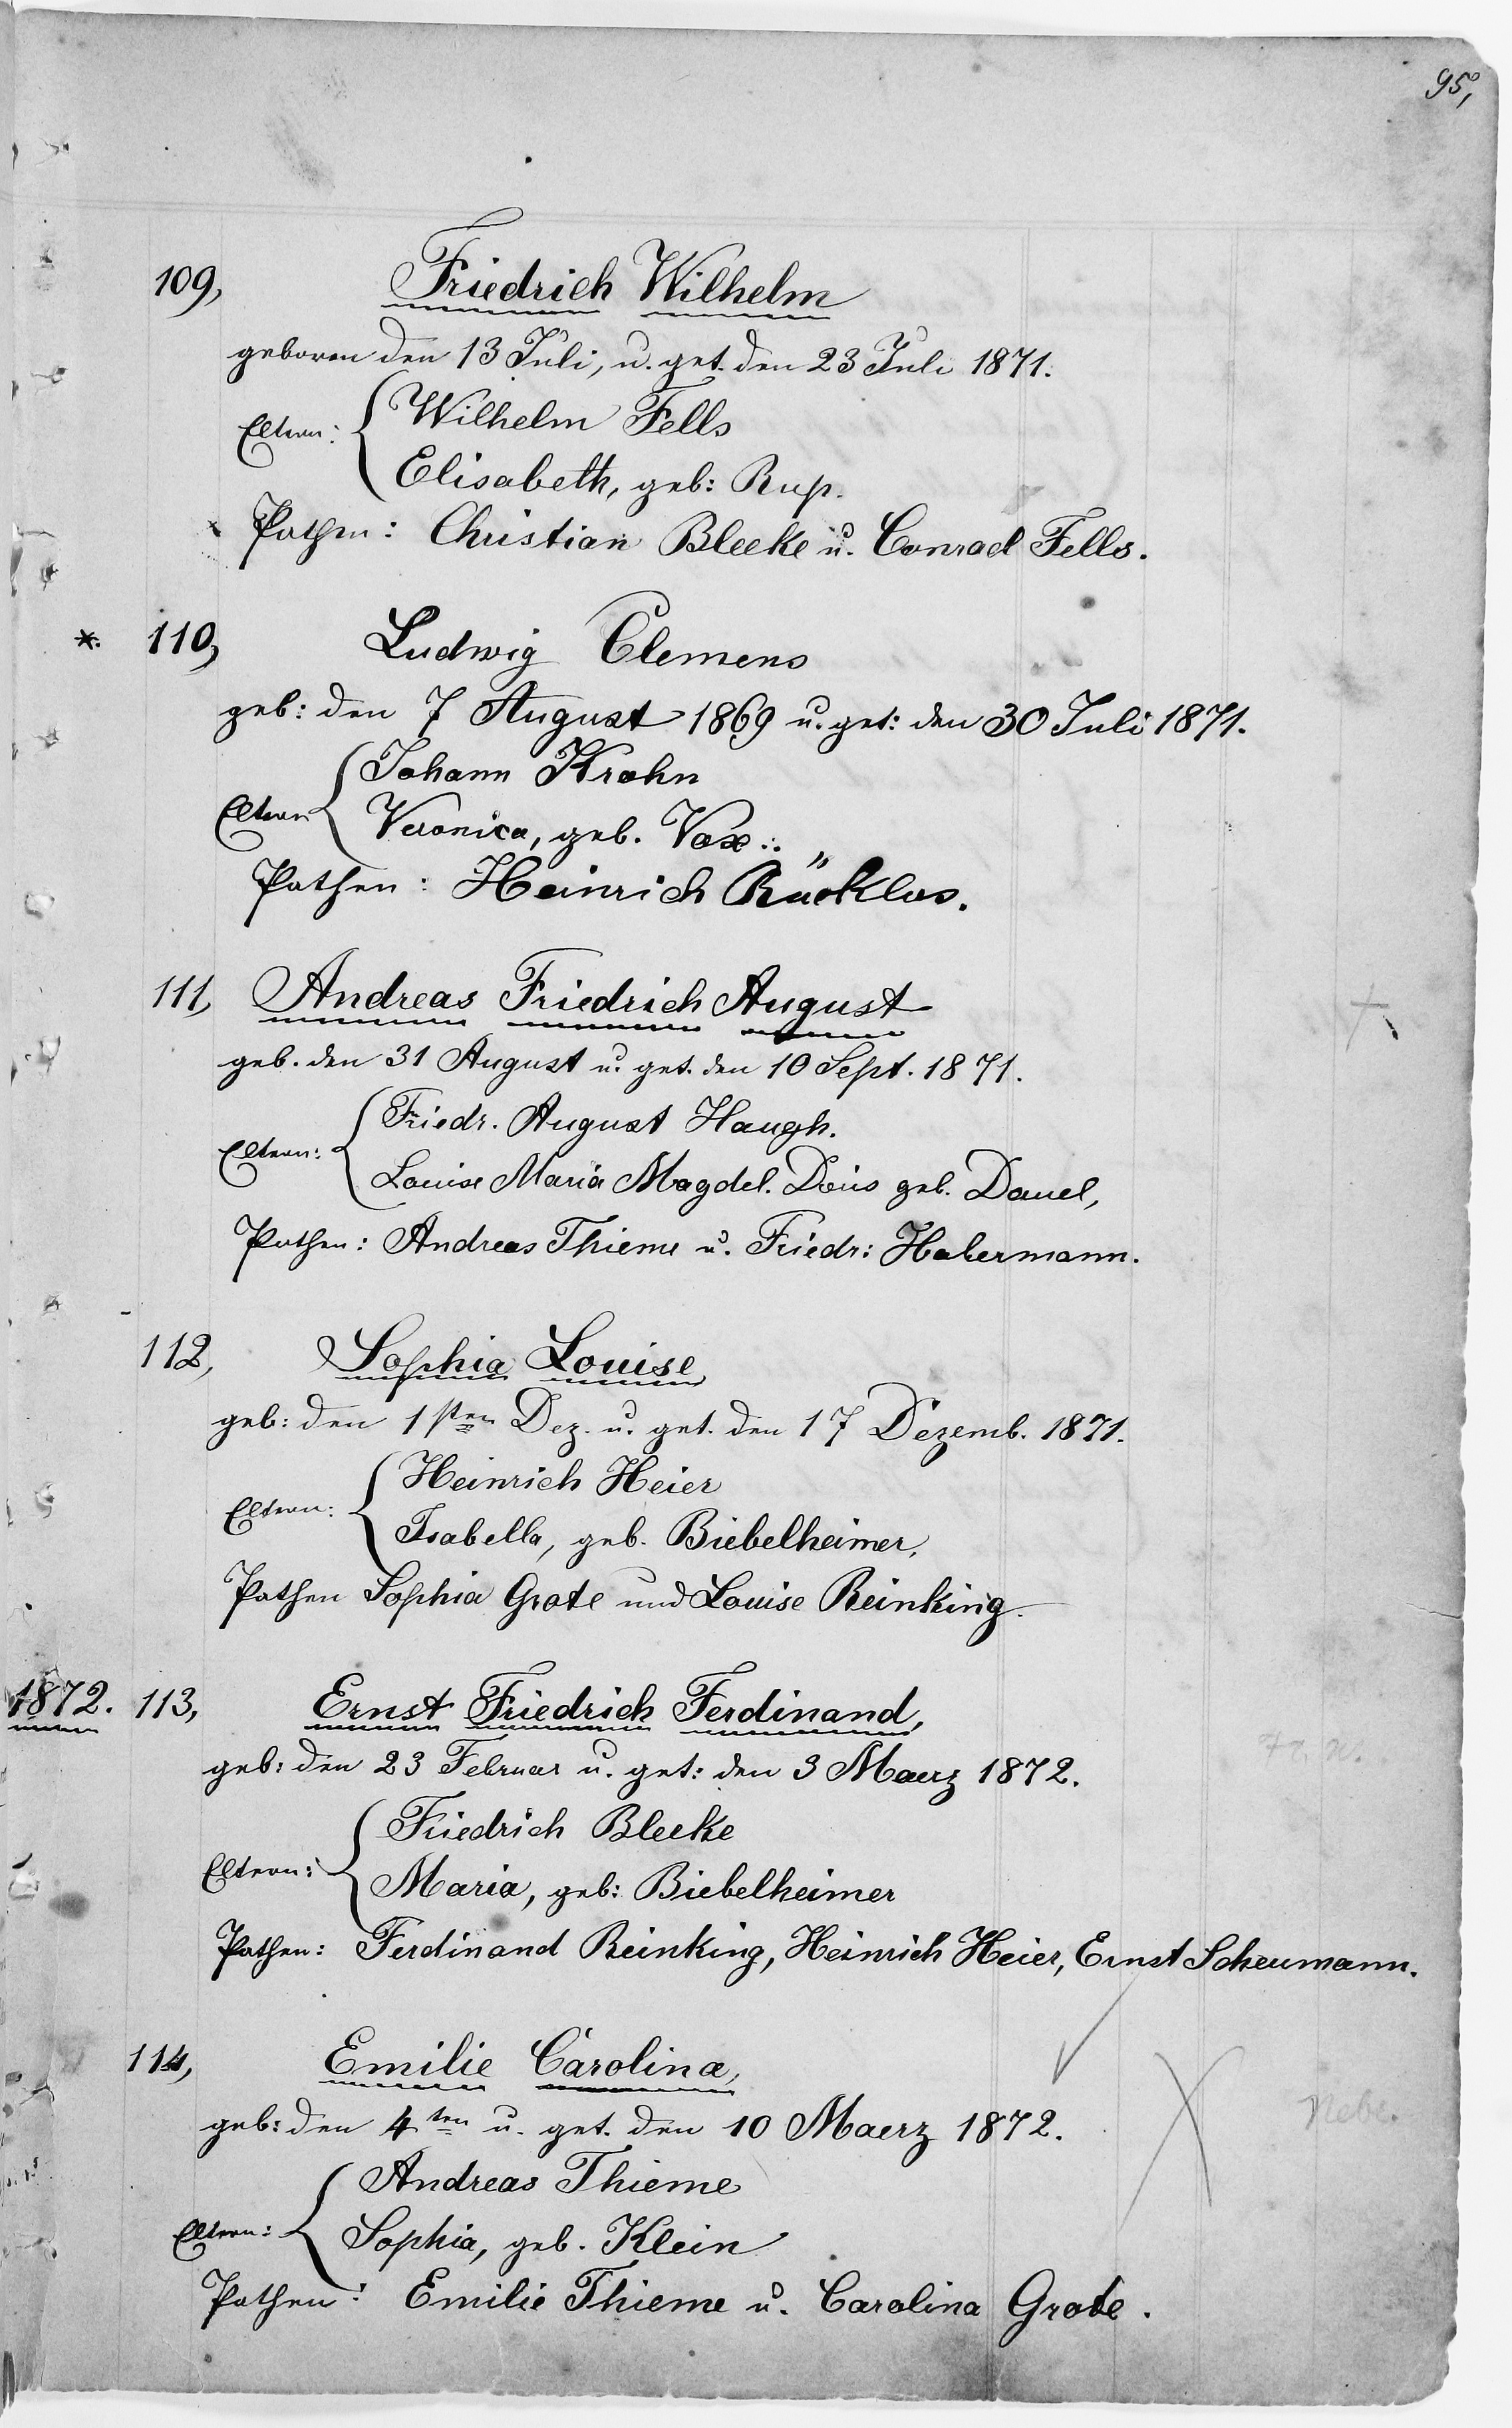 95,
109, Friedrich Wilhelm
geboren den 13 Juli, u. get. den 23 Juli 1871.
Eltern: Wilhelm Fells
Elisabeth, geb: Rup.
Pathen: Christian Bleeke u. Conrad Fells.
*. 110, Ludwig Clemens
geb: den 7 August 1869 u. get: den 30 Juli 1871.
Eltern Johann Krohn
Veronica, geb. Vox.
Pathen: Heinrich Rücklos.
111, Andreas Friedrich August
geb. den 31 August u. get. den 10 Sept. 1871.
Eltern: Friedr. August Haugh.
Louise Maria Magdel. Doris geb. Dauel,
Pathen: Andreas Thieme u. Friedr: Habermann.
112, Sophia Louise
geb: den 1sten Dez. u. get. den 17 Dezemb. 1871.
Eltern: Heinrich Heier
Isabella, geb. Biebelheimer,
Pathen Sophia Grote und Louise Reinking.
1872. 113, Ernst Friedrich Ferdinand,
geb: den 23 Februar u. get: den 3 Maerz 1872.
Eltern: Friedrich Bleeke
Maria, geb: Biebelheimer
Pathen: Ferdinand Reinking, Heinrich Heier, Ernst Scheumann.
114, Emilie Carolina,
geb: den 4ten u. get. den 10 Maerz 1872.
Nebr.
Eltern: Andreas Thieme
Sophia, geb. Klein
Pathen: Emilie Thieme u. Carolina Grote.